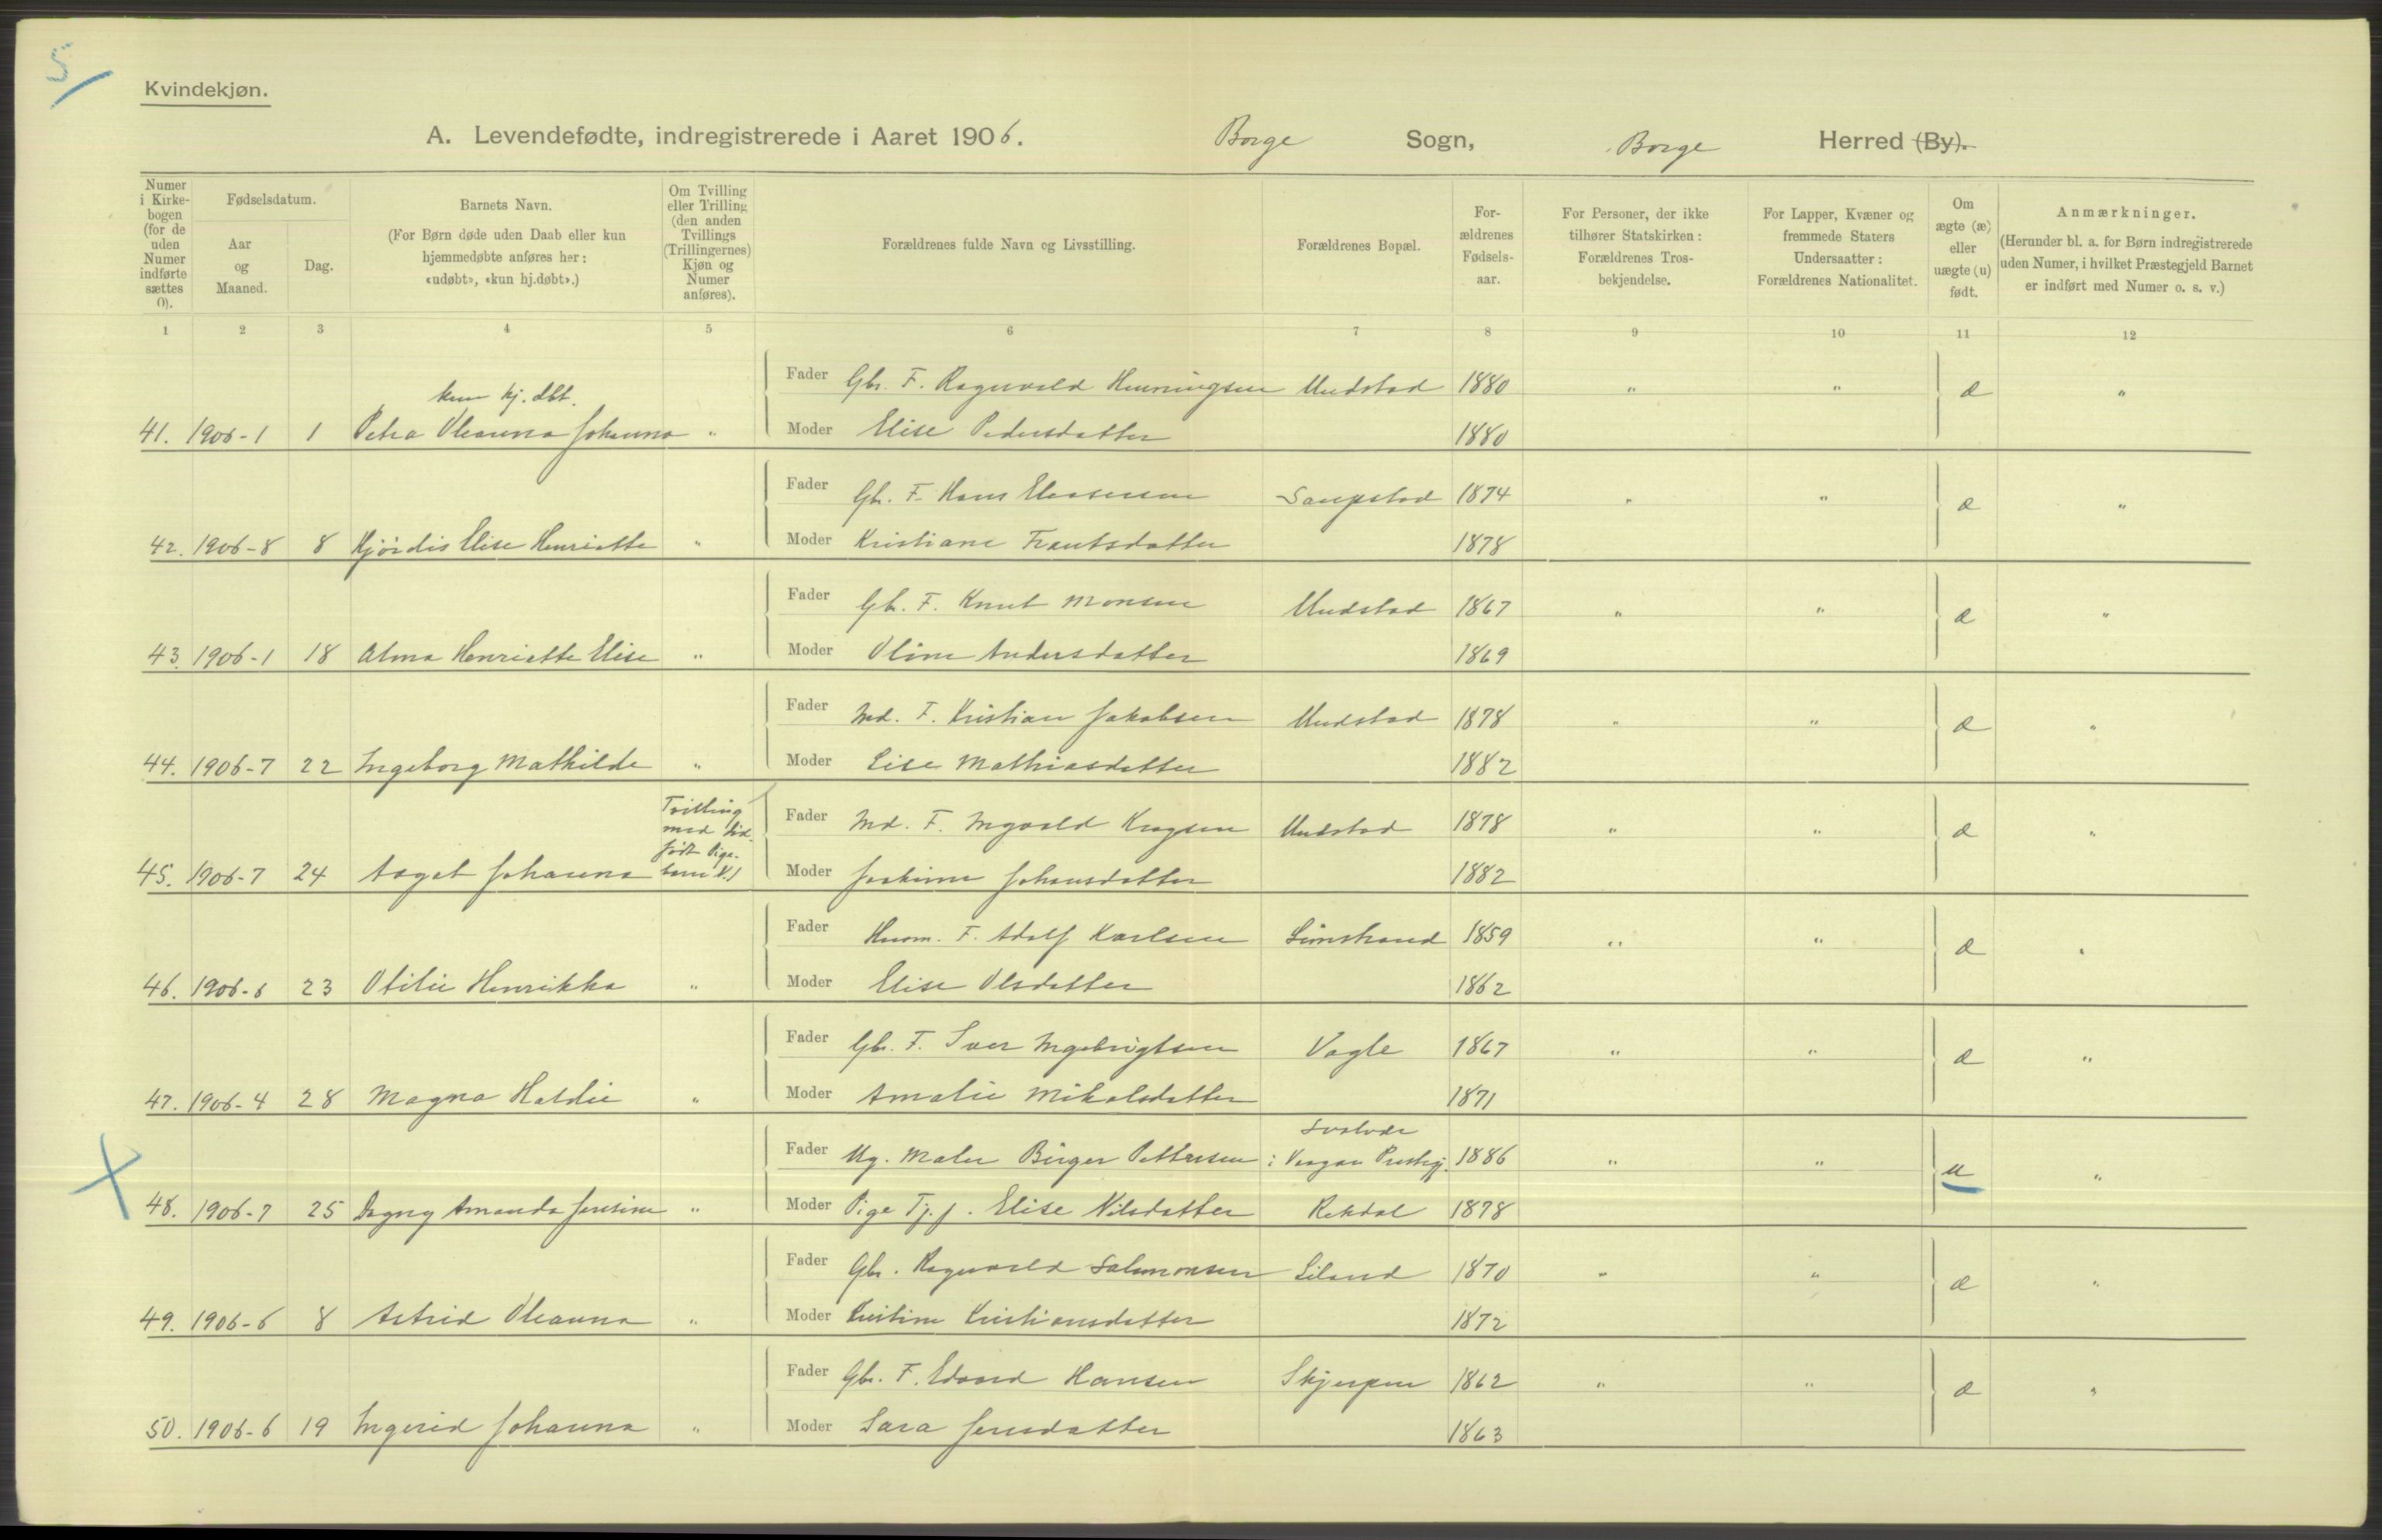 5/
Kvindekjøn.
A. Levendefødte, indregistrerede i Aaret 1906. Borge Sogn, Borge Herred (By).
Numer i Kirkebogen (for de uden Numer indførte sættes 0).
Fødselsdatum.
Aar og Maaned.
Dag.
Barnets Navn.
(For Børn døde uden Daab eller kun hjemmedøbte anføres her: «udøbt», «kun hj.døbt».)
Om Tvilling eller Trilling (den anden Tvillings (Trillingernes) Kjøn og Numer anføres).
Forældrenes fulde Navn og Livsstilling.
Forældrenes Bopæl.
Forældrenes Fødselsaar.
For Personer, der ikke tilhører Statskirken: Forældrenes Trosbekjendelse.
For Lapper, Kvæner og fremmede Staters Undersaatter: Forældrenes Nationalitet.
Om ægte (æ) eller uægte (u) født.
Anmærkninger.
(Herunder bl. a. for Børn indregistrerede uden Numer, i hvilket Præstegjeld Barnet er indført med Numer o. s. v.)
1 2 3 4 5 6 7 8 9 10 11 12
kun hj. dbt.
Fader Gbr. F. Ragnvald Henningsen Undstad 1880 " " æ "
41. 1906-1 1 Petra Oleanna Johanna " Moder Elise Pedersdatter 1880
Fader Gb. F. Hans Eleasersen Saupstad 1874 " " æ "
42. 1906-8 8 Hjördis Elise Henriette " Moder Kristiane Frantsdatter 1878
Fader Gb. F. Knut Monsen Undstad 1867 " " æ "
43. 1906-1 18 Alma Henriette Elise " Moder Oline Andersdatter 1869
Fader Ind. F. Kristian Jakobsen Undstad 1878 " " æ "
44. 1906-7 22 Ingeborg Mathilde " Moder Lise Mathiasdatter 1882
Tvilling
med död
Fader Ind. F. Ingvald Krogsen Undstad 1878 " " æ "
födt Pige-
45. 1906-7 24 Aagot Johanna barn Moder Joakime Johansdatter 1882
Fader Husm. F. Adolf Karlsen Limstrand 1859 " " æ "
46. 1906-6 23 Otilie Henrikka " Moder Elise Olsdatter 1862
Fader Gb. F. Iver Ingebrigtsen Vagle 1867 " " æ "
47. 1906-4 28 Magna Haldie " Moder Amalie Mikalsdatter 1871
Fader Ug. Maler Birger Pettersen i Vaagan Prestgj. 1886 " " u "
48. 1906-7 25 Dagny Amanda Jensine " Moder Pige Tj.j. Elise Nilsdatter Rekdal 1878
Fader Gbr. Ragnvald Salomonsen Liland 1870 " " æ "
49. 1906-6 8 Astrid Oleanna " Moder Kristine Kristiansdatter 1872
Fader Gbr. F. Edvard Hansen Skjerpen 1862 " " æ "
50. 1906-6 19 Ingerid Johanna " Moder Sara Jensdatter 1863